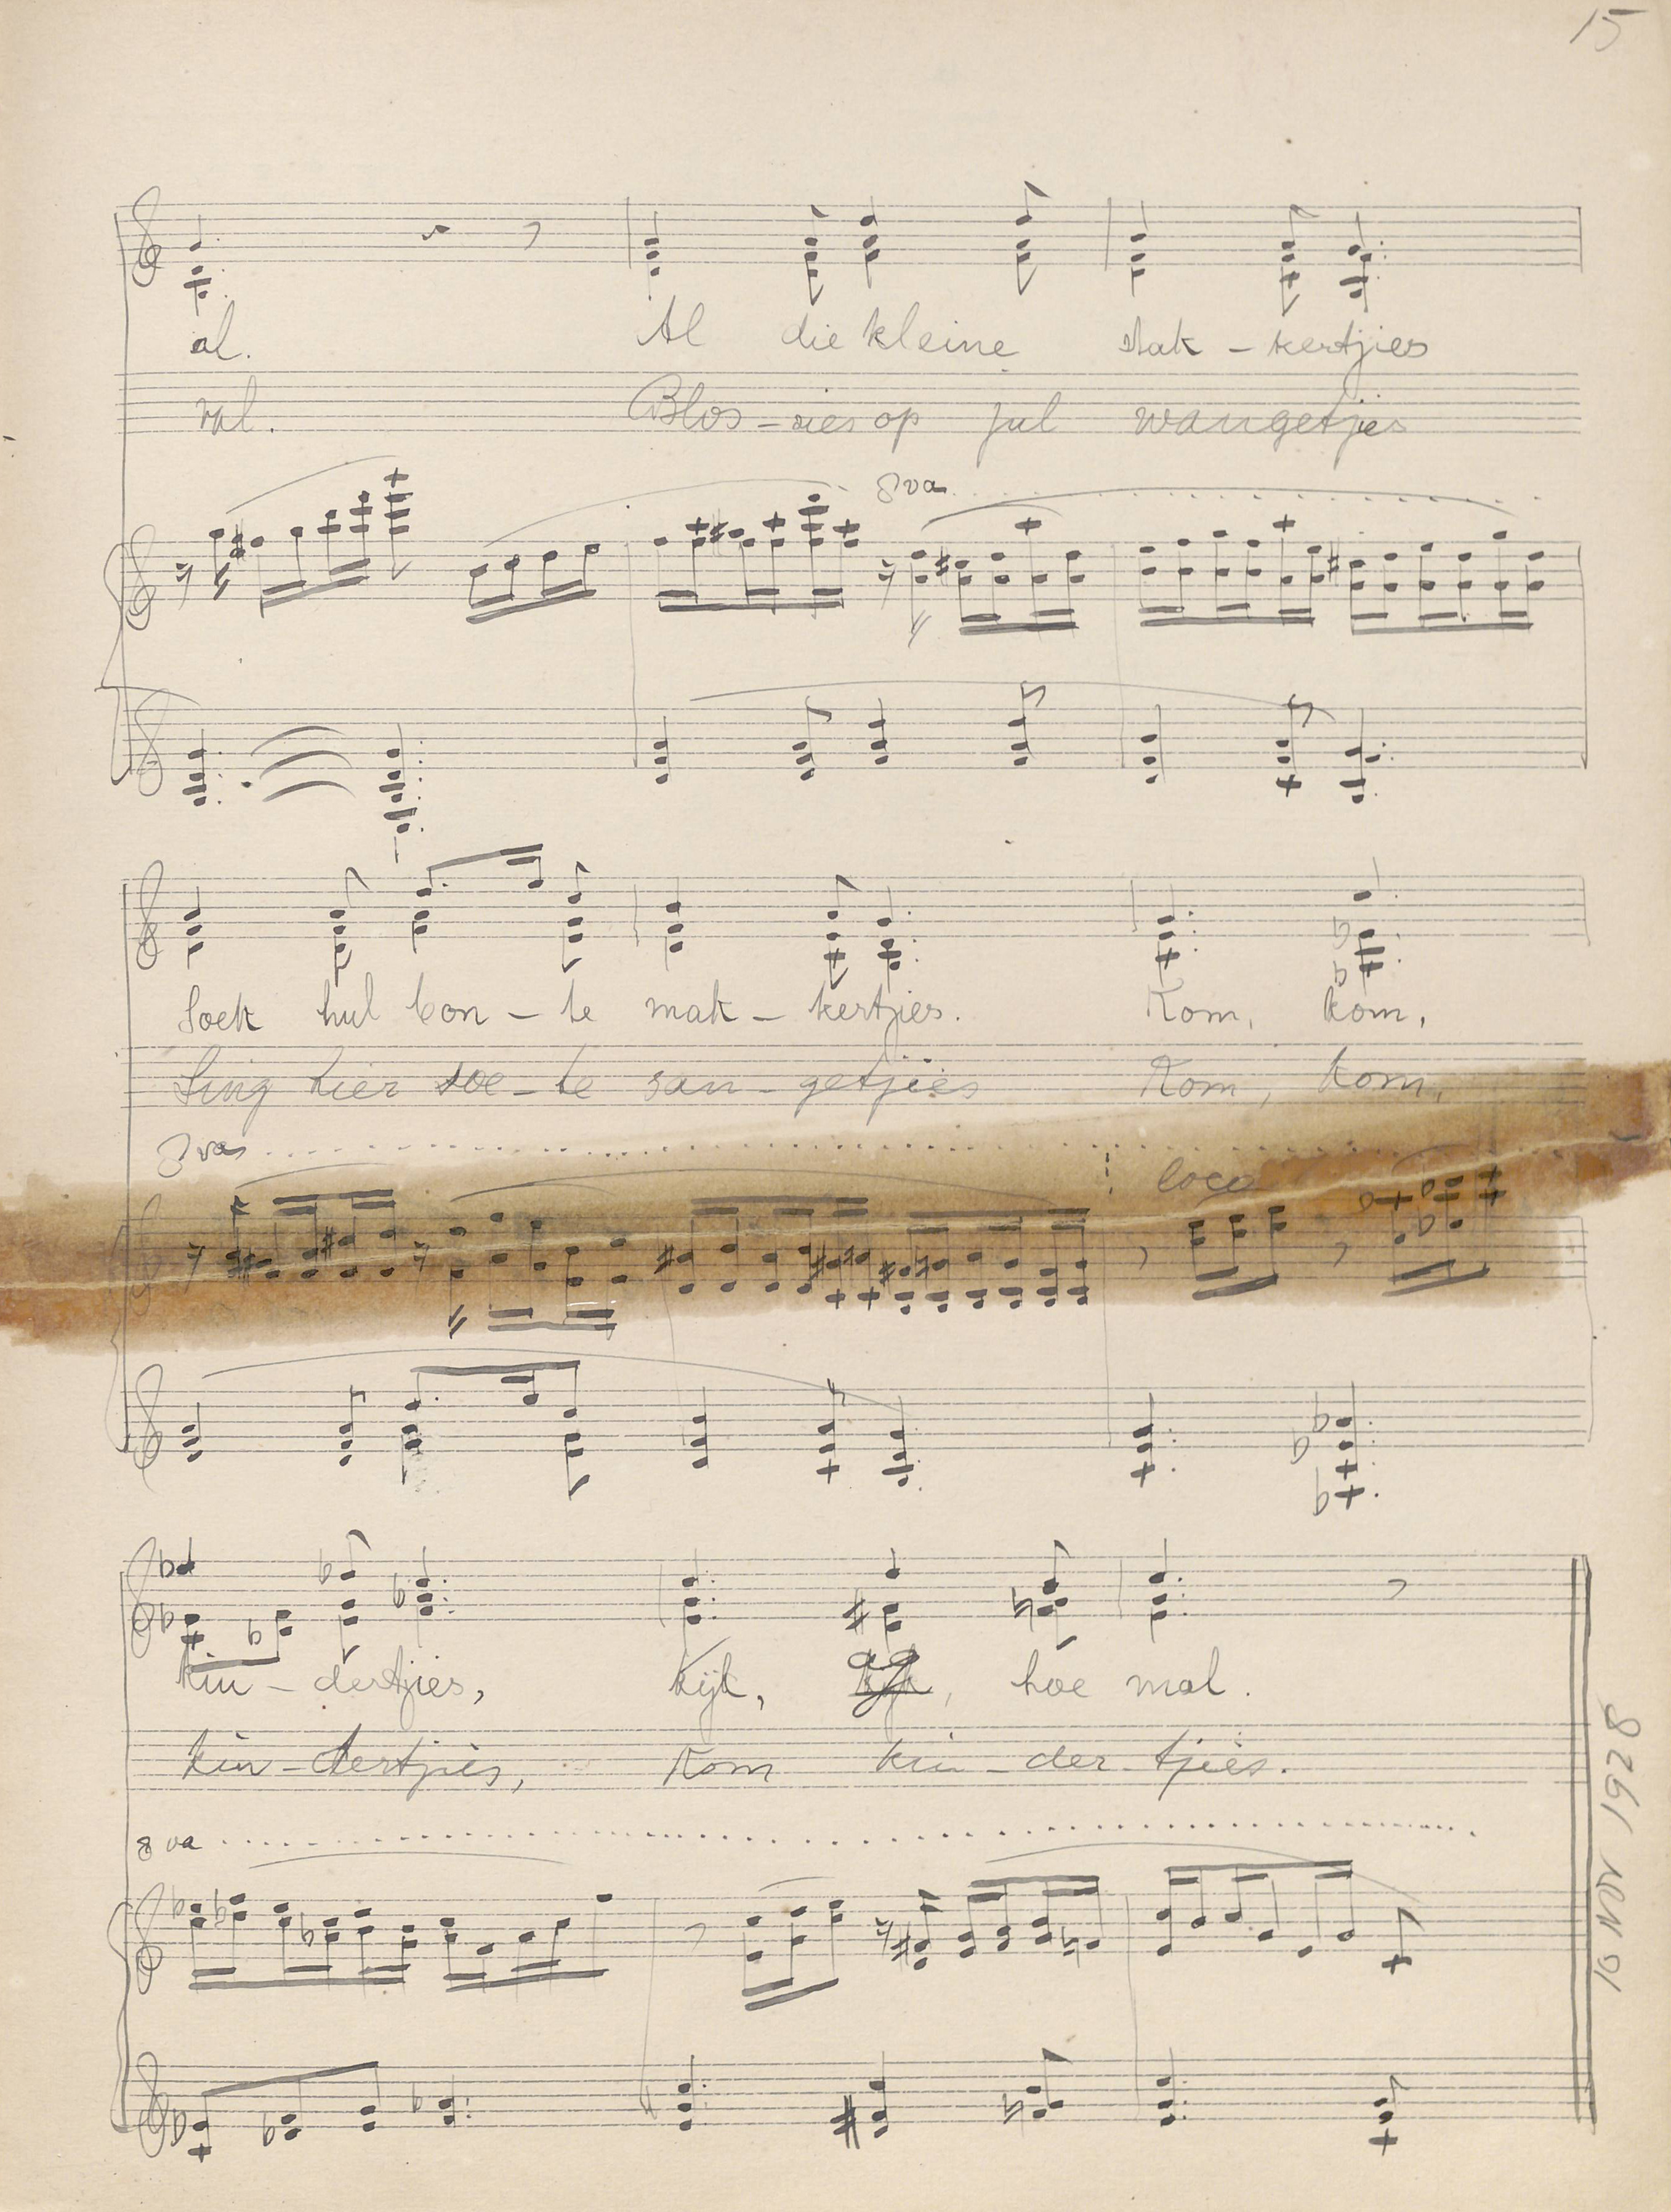 15
al. Al die kleine stak - kertjies
val. Blos - sies op jul wangetjies
8va
Soek hul bon - te mak - kertjies. Kom, kom,
Sing hier soe - te san - getjies Kom, kom,
8va
loco
kin - dertjies, kijk, ag, hoe mal.
kin - dertjies, Kom kin - der - tjies.
8va
10 NOV 1928